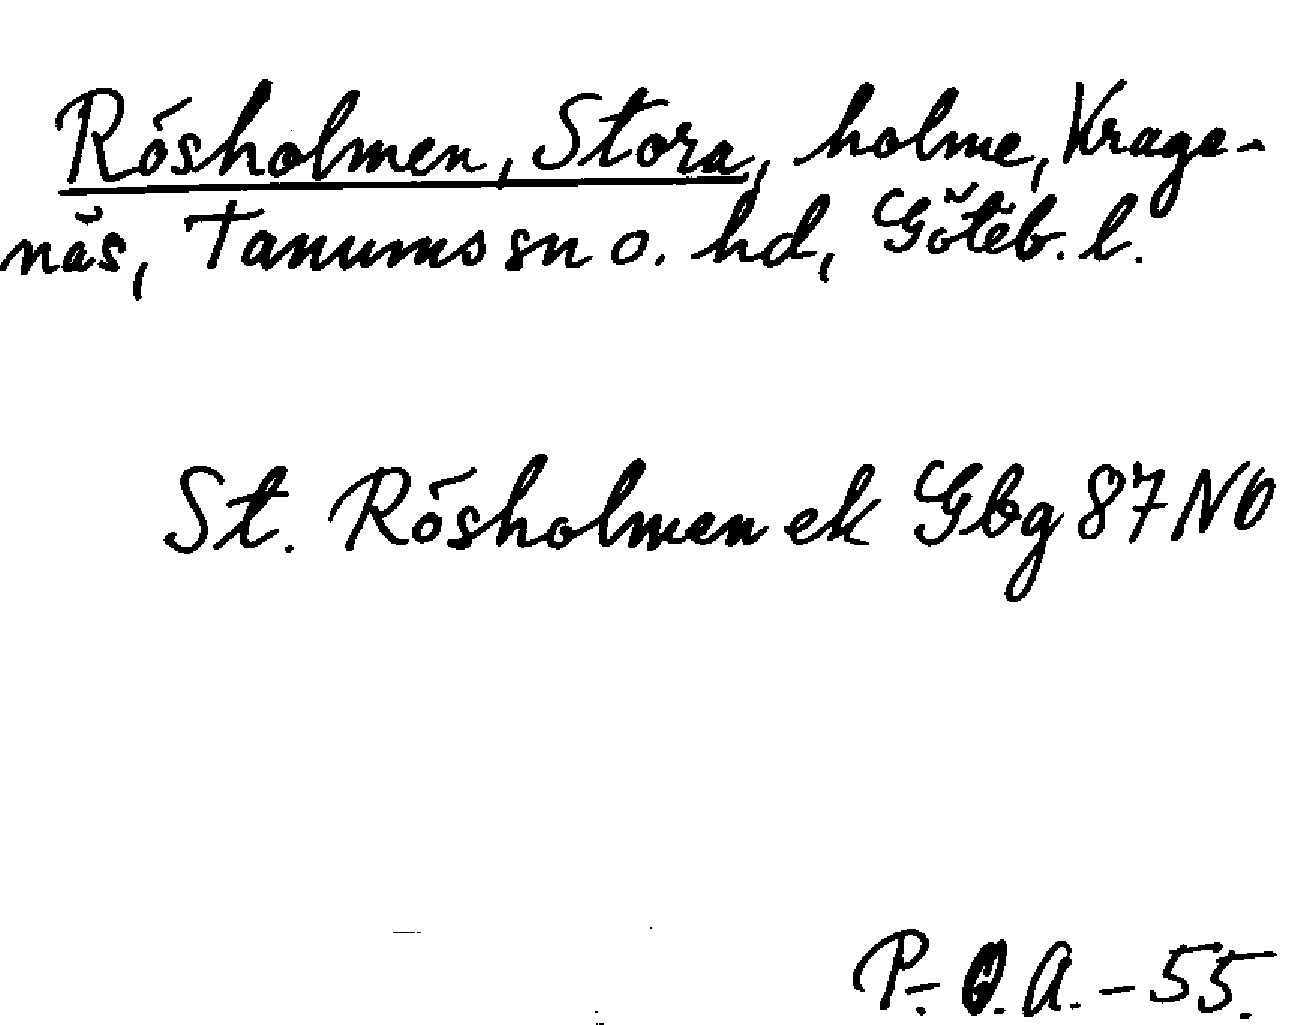 Rösholmen, Stora, holme, Krage-
näs, Tanums sn o. hd, Göteb. l.
St. Rösholmen ek Gbg 87 NO
P.-O.A.-55.